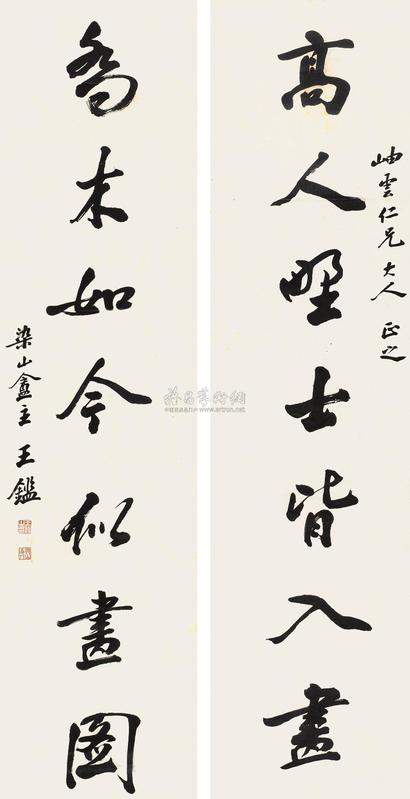 岫雲仁兄大人正之
高人野士皆入畫
喬木如今似畫圖
染山盦主王鑑
雅昌藝術網
www.artron.net